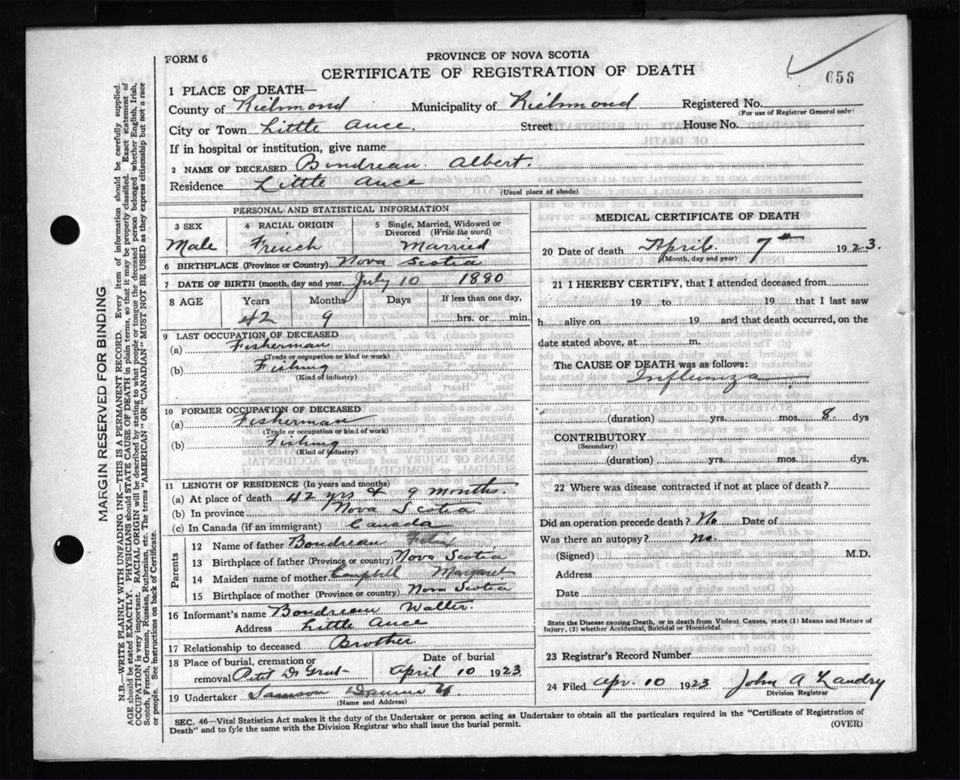 FORM 6
PROVINCE OF NOVA SCOTIA
CERTIFICATE OF REGISTRATION OF DEATH
656
1 PLACE OF DEATH—
County of Richmond Municipality of Richmond Registered No.
(For use of Registrar General only)
City or Town Little Ance. Street House No.
If in hospital or institution, give name
2 NAME OF DECEASED Boudreau. Albert.
Residence Little Ance
(Usual place of abode)
PERSONAL AND STATISTICAL INFORMATION
3 SEX 4 RACIAL ORIGIN 5 Single, Married, Widowed or Divorced (Write the word)
Male French Married
6 BIRTHPLACE (Province or Country) Nova Scotia
7 DATE OF BIRTH (month, day and year) July 10 1880
8 AGE Years Months Days If less than one day,
42 9 hrs. or min.
9 LAST OCCUPATION OF DECEASED
(a) Fisherman
(Trade or occupation or kind or work)
(b) Fishing
(Kind of industry)
10 FORMER OCCUPATION OF DECEASED
(a) Fisherman
(Trade or occupation or kind of work)
(b) Fishing
(Kind of industry)
11 LENGTH OF RESIDENCE (In years and months)
(a) At place of death 42 yrs & 9 months.
(b) In province Nova Scotia
(c) In Canada (if an immigrant) Canada
Parents
12 Name of father Boudreau
13 Birthplace of father (Province or country) Nova Scotia
14 Maiden name of mother Campbell Margaret
15 Birthplace of mother (Province or country) Nova Scotia
16 Informant's name Boudreau Walter.
Address Little Ance
17 Relationship to deceased Brother
18 Place of burial, cremation or removal Petit De Grat Date of burial April 10 1923
19 Undertaker Samson
(Name and Address)
MEDICAL CERTIFICATE OF DEATH
20 Date of death April. 7th 1923.
(Month, day and year)
21 I HEREBY CERTIFY, that I attended deceased from
19 to 19 that I last saw
h alive on 19 and that death occurred, on the
date stated above, at m.
The CAUSE OF DEATH was as follows:
Influenza
(duration) yrs. mos. 8 dys
CONTRIBUTORY
(Secondary)
(duration) yrs. mos. dys
22 Where was disease contracted if not at place of death?
Did an operation precede death? No Date of
Was there an autopsy? No.
(Signed) M.D.
Address
Date
State the Disease causing Death, or in death from Violent Causes, state (1) Means and Nature of
Injury, (2) whether Accidental, Suicidal or Homicidal.
23 Registrar's Record Number
24 Filed Apr. 10 1923 John A Landry
Division Registrar
SEC. 46—Vital Statistics Act makes it the duty of the Undertaker or person acting as Undertaker to obtain all the particulars required in the "Certificate of Registration of
Death" and to fyle the same with the Division Registrar who shall issue the burial permit.
(OVER)
MARGIN RESERVED FOR BINDING
N.B.—WRITE PLAINLY WITH UNFADING INK—THIS IS A PERMANENT RECORD. Every item of information should be carefully supplied.
AGE should be stated EXACTLY. PHYSICIANS should STATE CAUSE OF DEATH in plain terms, so that it may be properly classified. Exact statement of
OCCUPATION is very important. RACIAL ORIGIN will be described by stating to what people or tongue the deceased person belonged whether English, Irish,
Scotch, French, German, Russian, Ruthenian, etc. The terms "AMERICAN" OR "CANADIAN" MUST NOT BE USED as they express citizenship but not a race
or people. See instructions on back of Certificate.